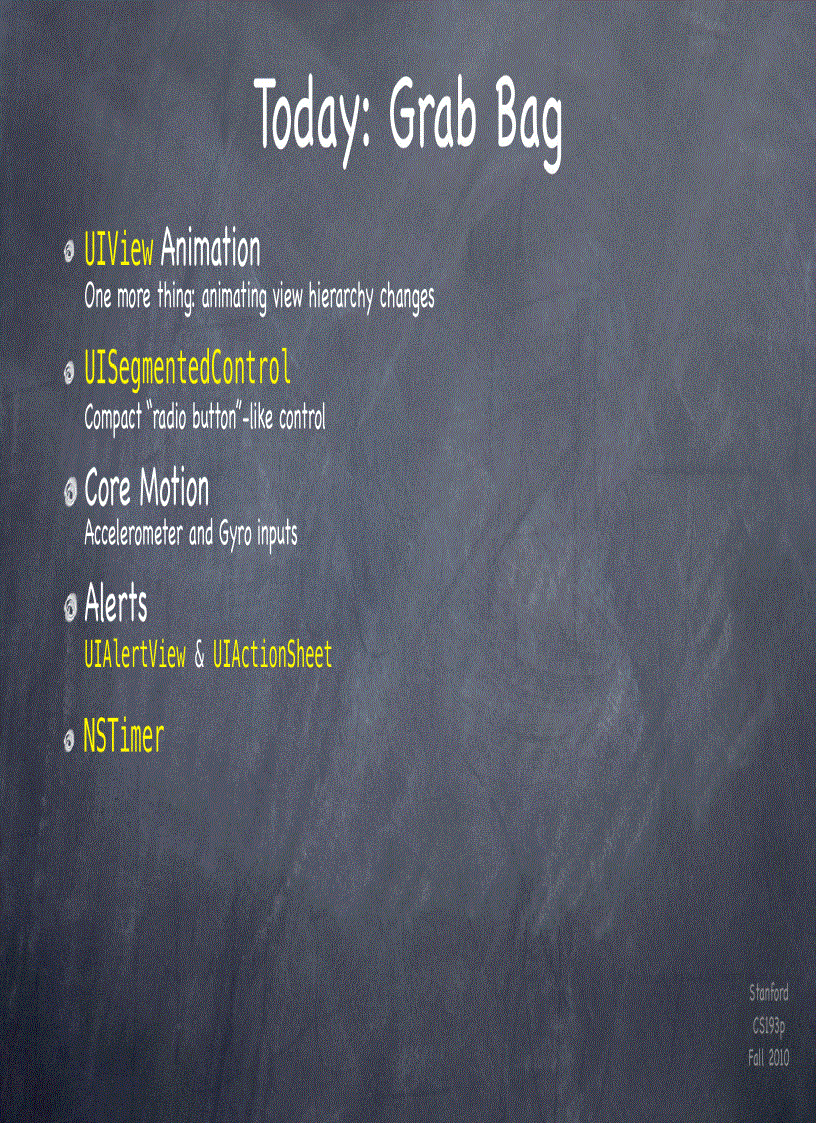 Today: Grab Bag
UIView Animation
One more thing: animating view hierarchy changes
UISegmentedControl
Compact “radio button”-like control
Core Motion
Accelerometer and Gyro inputs
Alerts
UIAlertView & UIActionSheet
NSTimer
Stanford
CS193p
Fall 2010